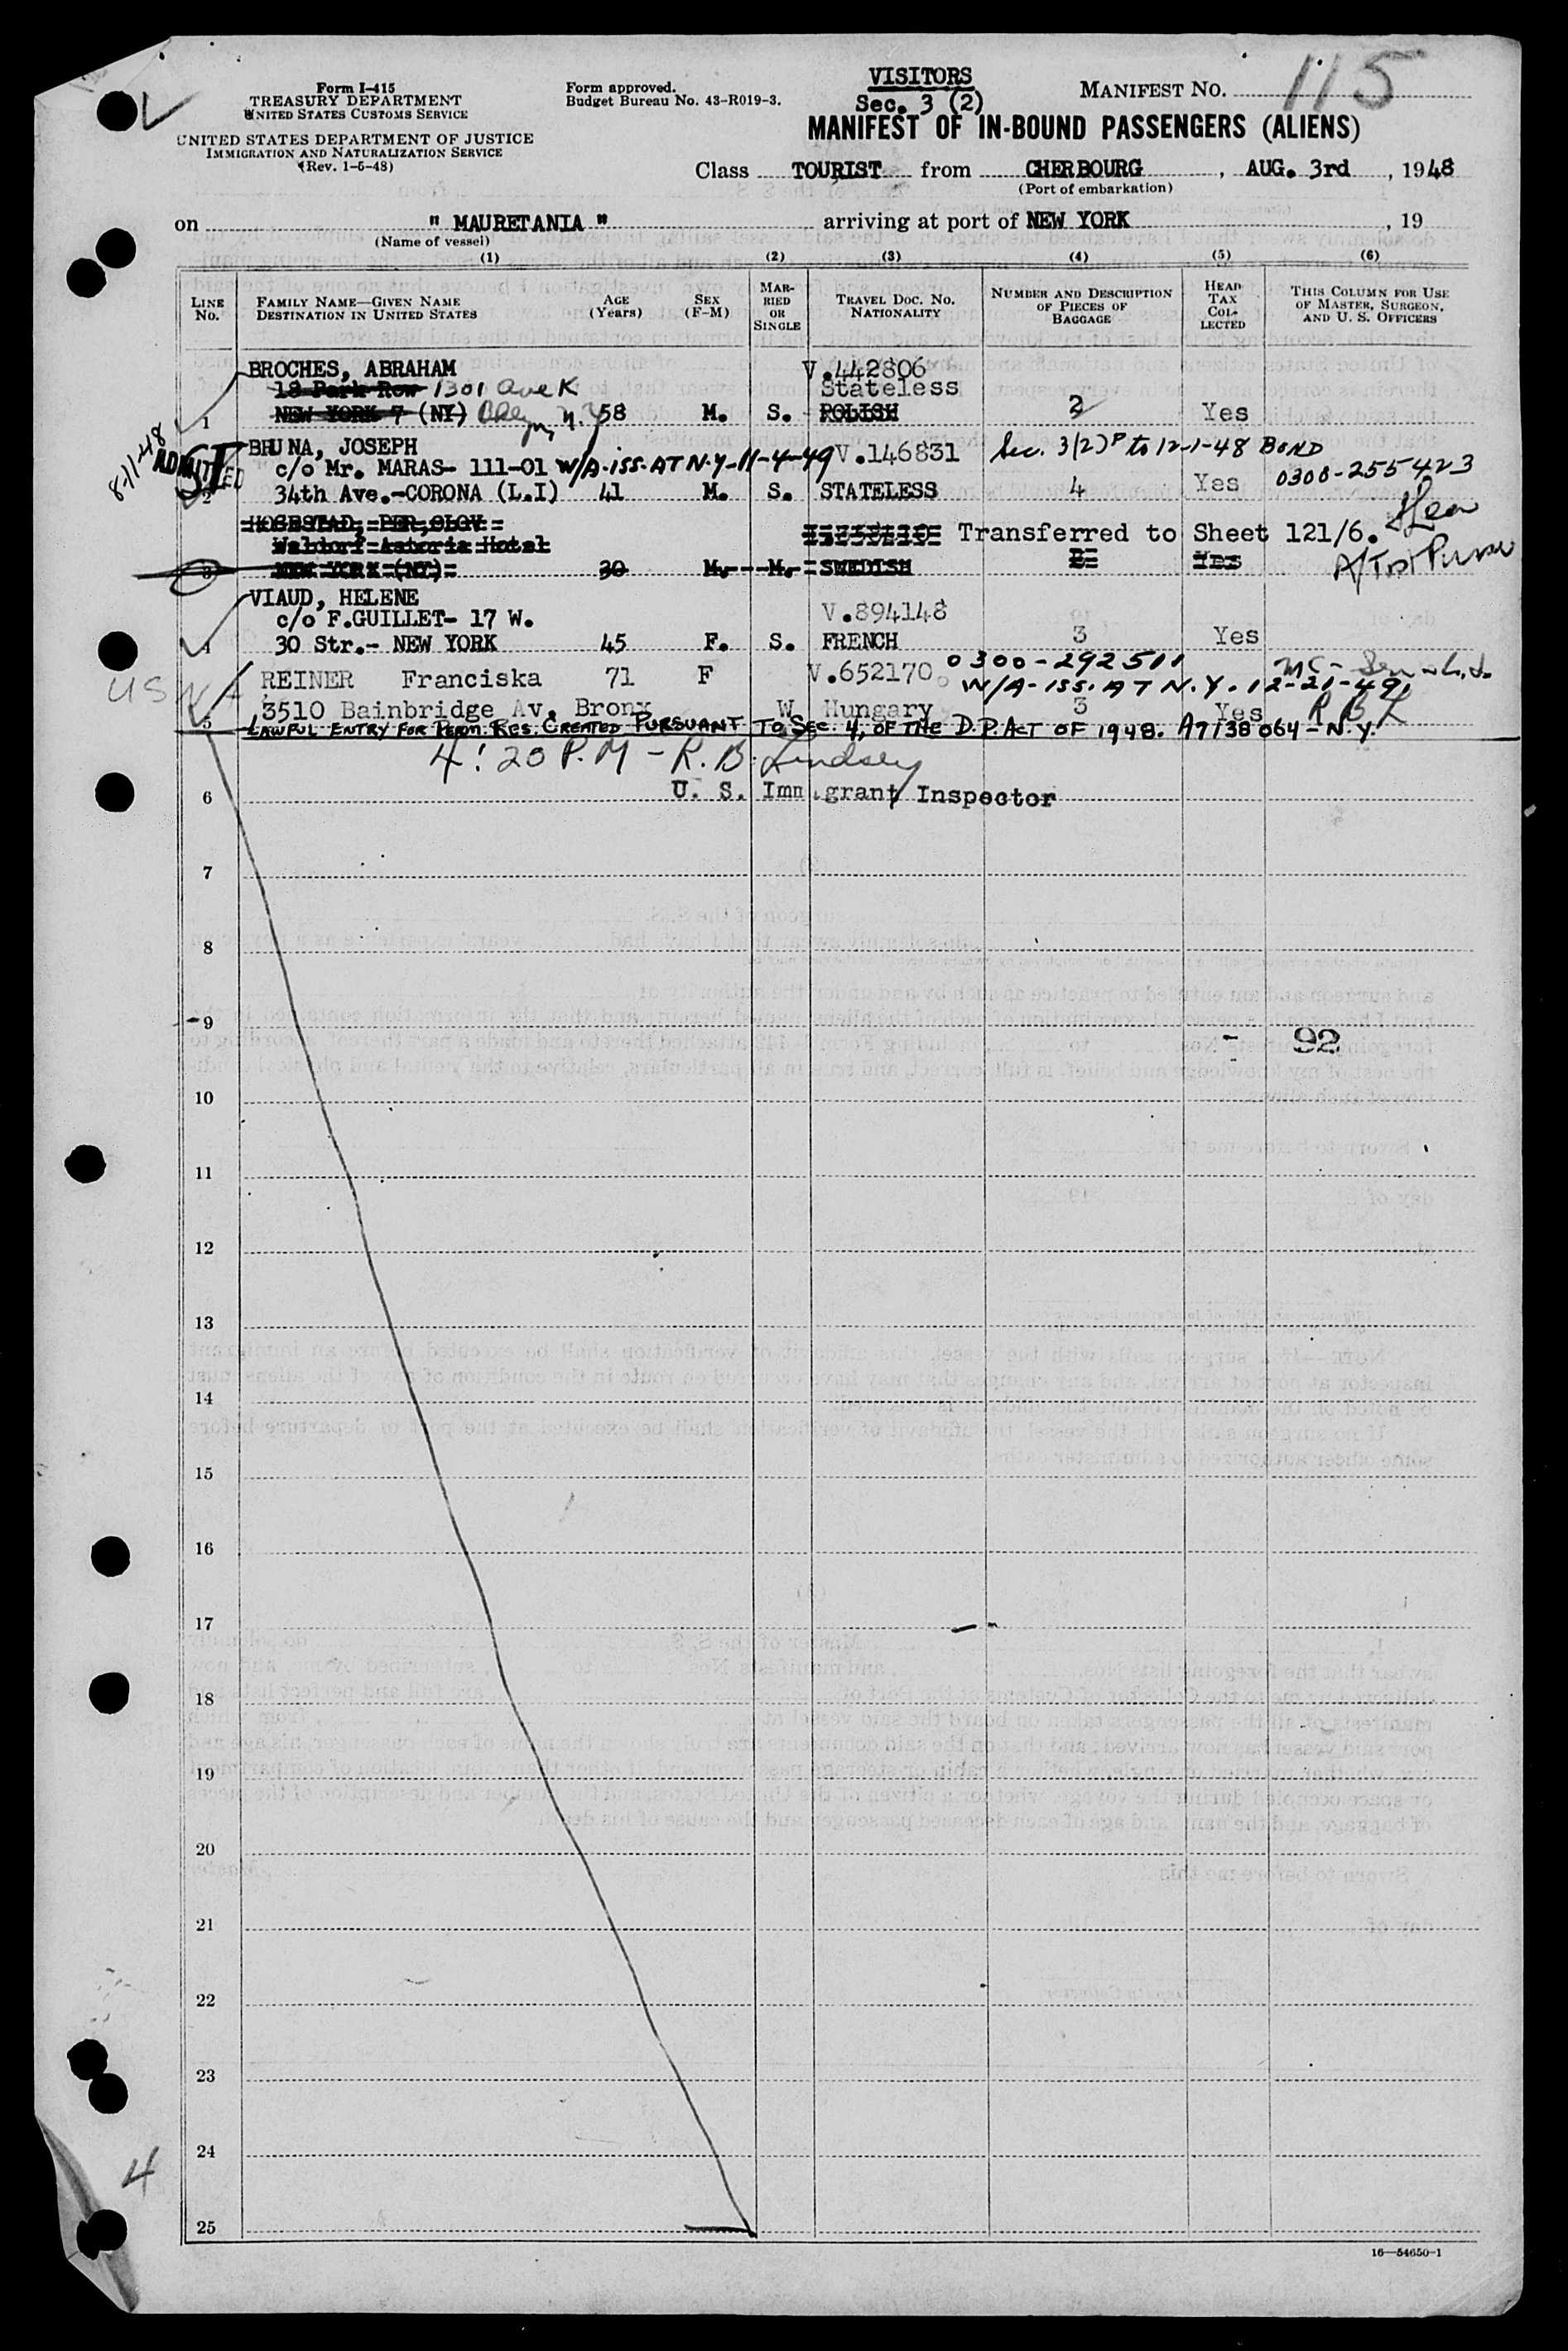 115
Form I-415
TREASURY DEPARTMENT
UNITED STATES CUSTOMS SERVICE
UNITED STATES DEPARTMENT OF JUSTICE
IMMIGRATION AND NATURALIZATION SERVICE
(Rev. 1-5-48)
Form approved.
Budget Bureau No. 43-R019-3.
VISITORS
Sec. 3 (2)
MANIFEST NO.
MANIFEST OF IN-BOUND PASSENGERS (ALIENS)
Class TOURIST from CHERBOURG, AUG. 3rd, 1948
(Port of embarkation)
on " MAURETANIA " arriving at port of NEW YORK, 19
(Name of vessel)
(1) (2) (3) (4) (5) (6)
LINE No.
FAMILY NAME—GIVEN NAME
DESTINATION IN UNITED STATES
AGE (Years)
SEX (F-M)
MARRIED OR SINGLE
TRAVEL DOC. NO.
NATIONALITY
NUMBER AND DESCRIPTION OF PIECES OF BAGGAGE
HEAD TAX COLLECTED
THIS COLUMN FOR USE OF MASTER, SURGEON, AND U. S. OFFICERS
BROCHES, ABRAHAM V.442806
18 Park Row 1301 Ave K Stateless
1 NEW YORK 7 (NY) 58 M. S. POLISH 2 Yes
8-11-48 ADMITTED
BRUNA, JOSEPH V.146831 Sec. 3(2) P to 12-1-48 BOND
c/o Mr. MARAS- 111-01 W/A-ISS. AT N.Y-11-4-49
0300-255423
2 34th Ave.-CORONA (L.I) 41 M. S. STATELESS 4 Yes
HOGESTAD, PER, OLOV Transferred to Sheet 121/6.
Waldorf Astoria Hotel
3 NEW YORK (NY) 30 M. M. SWEDISH 2 Yes
VIAUD, HELENE V.894148
c/o F.GUILLET- 17 W.
4 30 Str.- NEW YORK 45 F. S. FRENCH 3 Yes
US
REINER Franciska 71 F V.652170 0300-292511
W/A-ISS. AT N.Y. 12-21-49,
5 3510 Bainbridge Av. Bronx W Hungary 3 Yes
LAWFUL ENTRY FOR PERM. RES. CREATED PURSUANT TO SEC. 4, OF THE D.P. ACT OF 1948. A7138064-N.Y.
4:20 P.M - R. B. Lindsey
6 U. S. Immigrant Inspector
7
8
9
92
10
11
12
13
14
15
16
17
18
19
20
21
22
23
24
4
25
16—54650-1